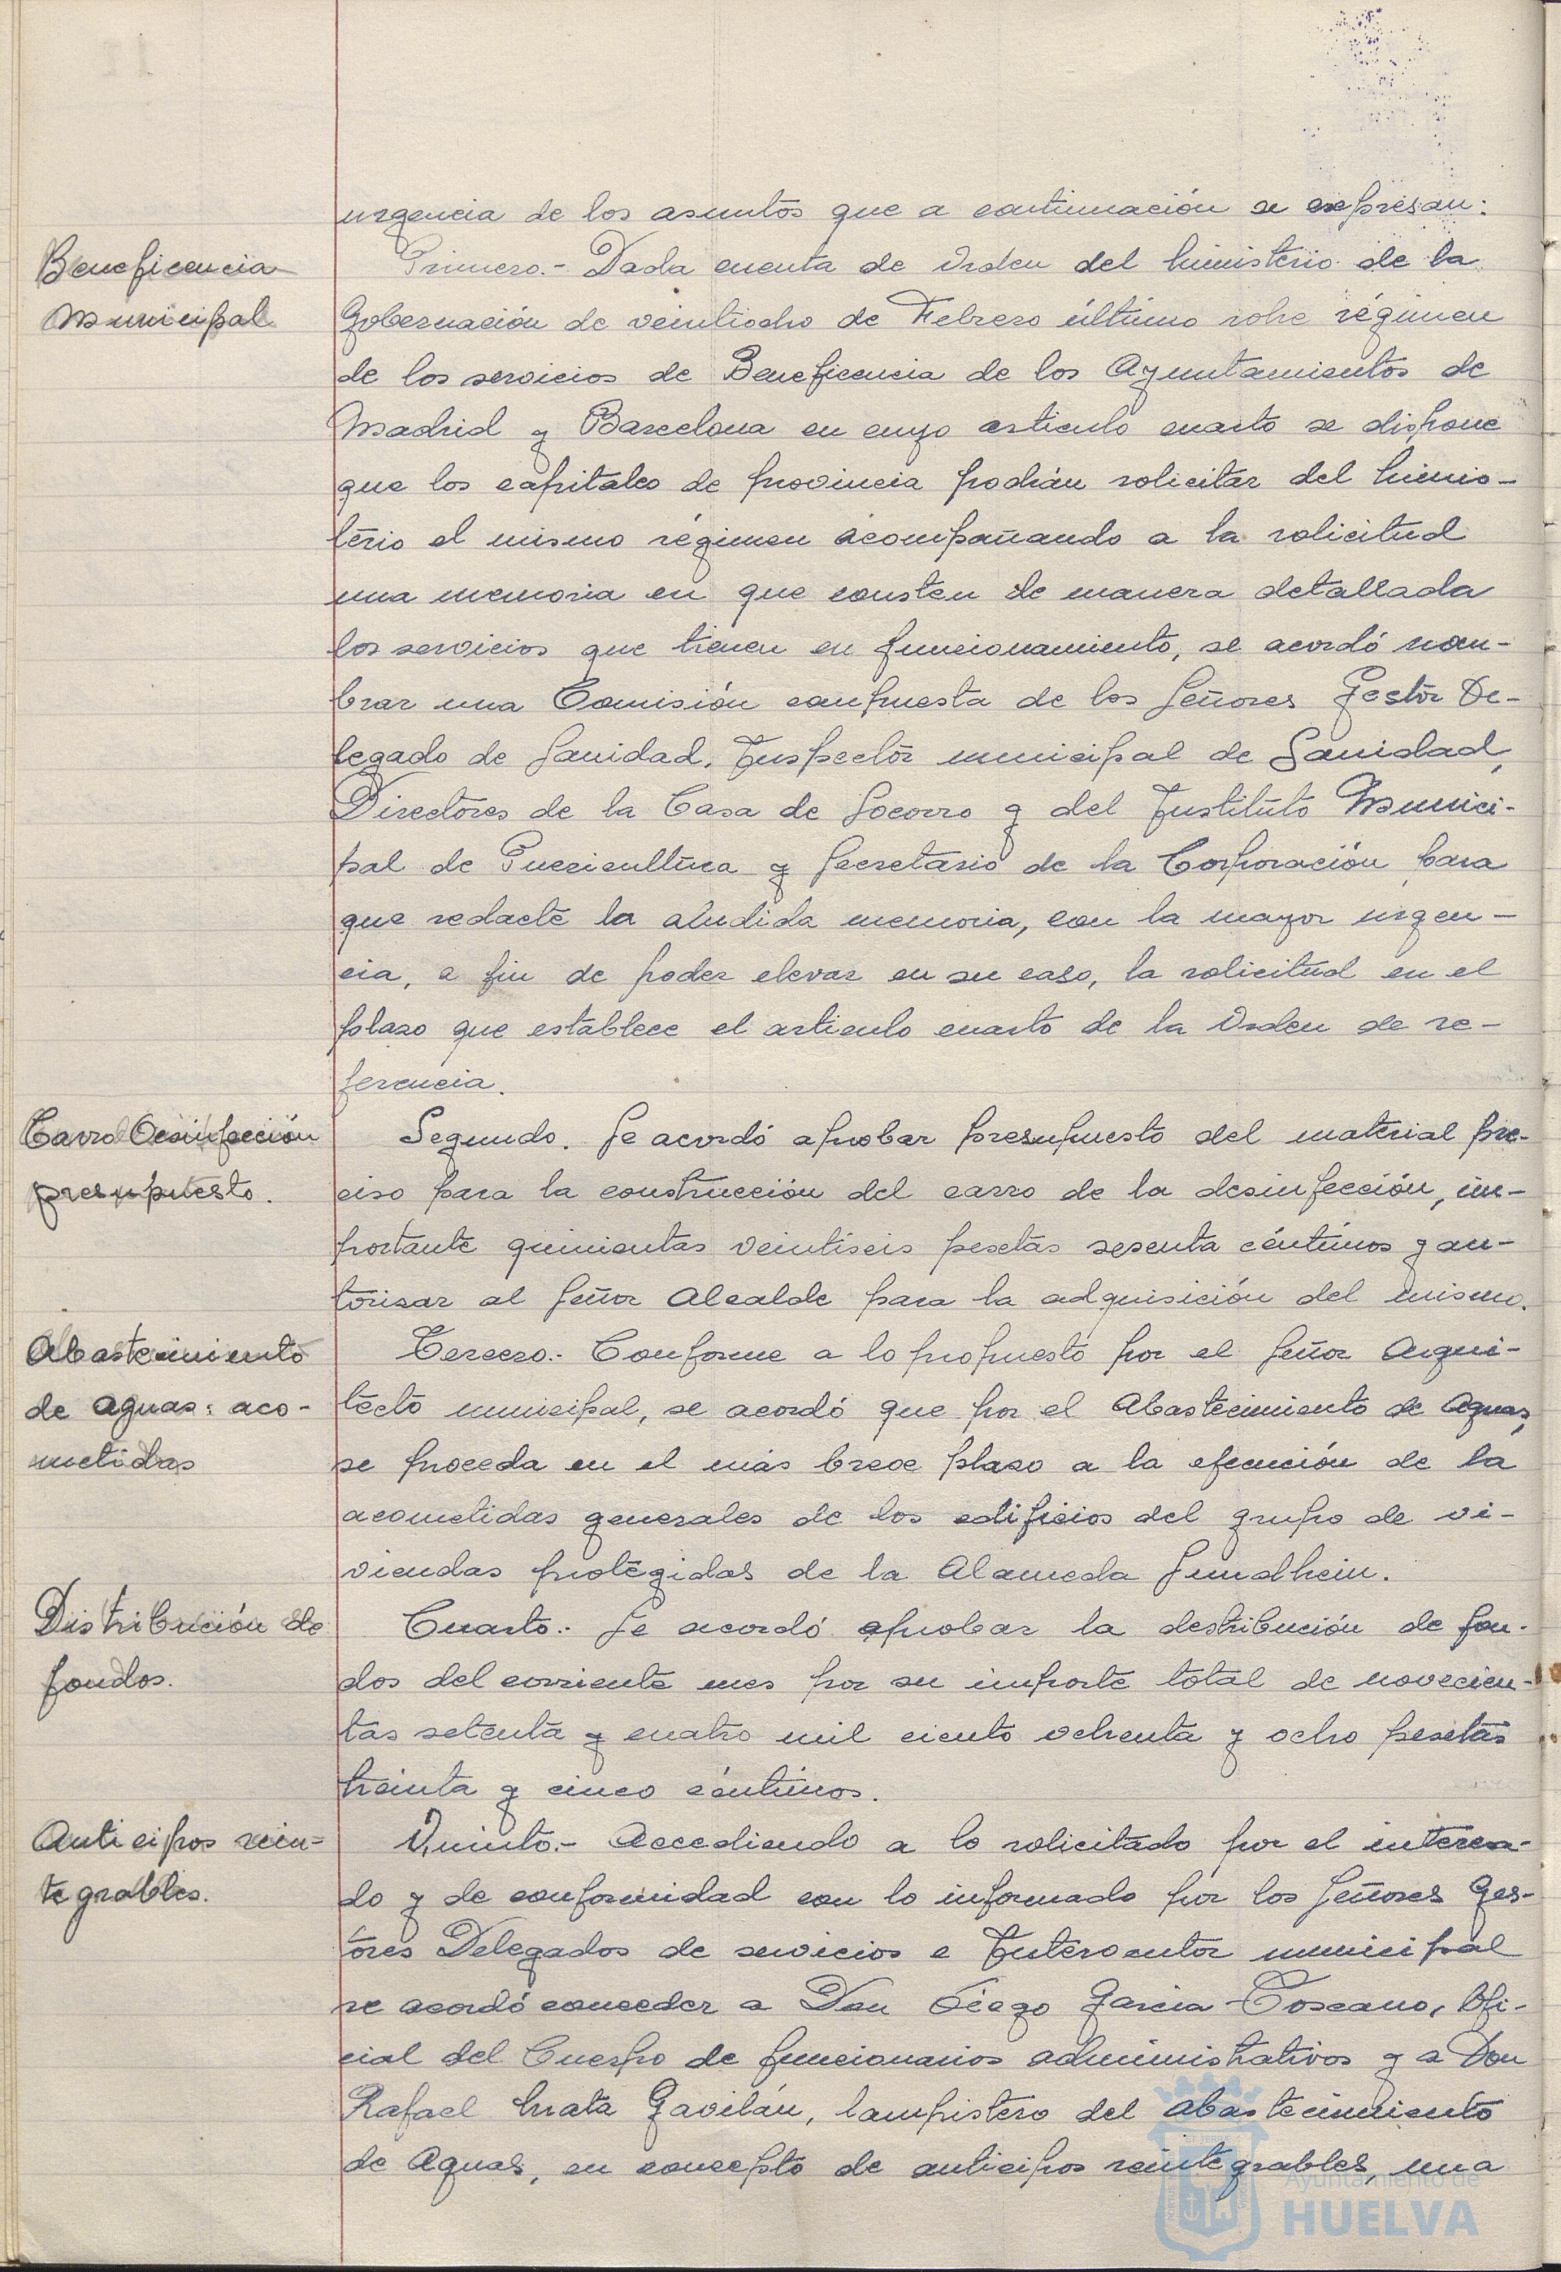 urgencia de los asuntos que a continuación se expresan:
Beneficencia
Municipal
Primero.- Dada cuenta de Orden del Ministerio de la
Gobernación de veintiocho de Febrero último sobre régimen
de los servicios de Beneficencia de los Ayuntamientos de
Madrid y Barcelona en cuyo articulo cuarto se dispone
que los capitales de provincia podrán solicitar del Minis-
terio el mismo régimen acompañando a la solicitud
una memoria en que consten de manera detallada
los servicios que tienen en funcionamiento, se acordó nom-
brar una Comisión compuesta de los Señores Gestor De-
legado de Sanidad, Inspector municipal de Sanidad,
Directores de la Casa de Socorro y del Instituto Munici-
pal de Puericultura y Secretario de la Corporación para
que redacte la aludida memoria, con la mayor urgen-
cia, a fin de poder elevar en su caso, la solicitud en el
plazo que establece el articulo cuarto de la Orden de re-
ferencia.
Carro Desinfección
presupuesto.
Segundo. Se acordó aprobar presupuesto del material pre-
ciso para la construcción del carro de la desinfección, im-
portante quinientas veintiseis pesetas sesenta céntimos y au-
torizar al Señor Alcalde para la adquisición del mismo.
Abastecimiento
de aguas: aco-
metidas
Tercero.- Conforme a lo propuesto por el Señor Arqui-
tecto municipal, se acordó que por el Abastecimiento de Aguas,
se proceda en el más breve plazo a la ejecución de la
acometidas generales de los edificios del grupo de vi-
viendas protegidas de la Alameda Sundhein.
Distribución de
fondos.
Cuarto.- Se acordó aprobar la destribución de fon-
dos del corriente mes por su importe total de novecien-
tas setenta y cuatro mil ciento ochenta y ocho pesetas
treinta y cinco céntimos.
Anticipos rein-
tegrables.
Quinto.- Accediendo a lo solicitado por el interesa-
do y de conformidad con lo informado por los Señores Ges-
tores Delegados de servicios e Interventor municipal
se acordó conceder a Don Diego Garcia Toscano, Ofi-
cial del Cuerpo de funcionarios administrativos y a Don
Rafael Mata Gavilán, lampistero del abastecimiento
de Aguas, en concepto de anticipos reintegrables, una
Ayuntamiento de
HUELVA